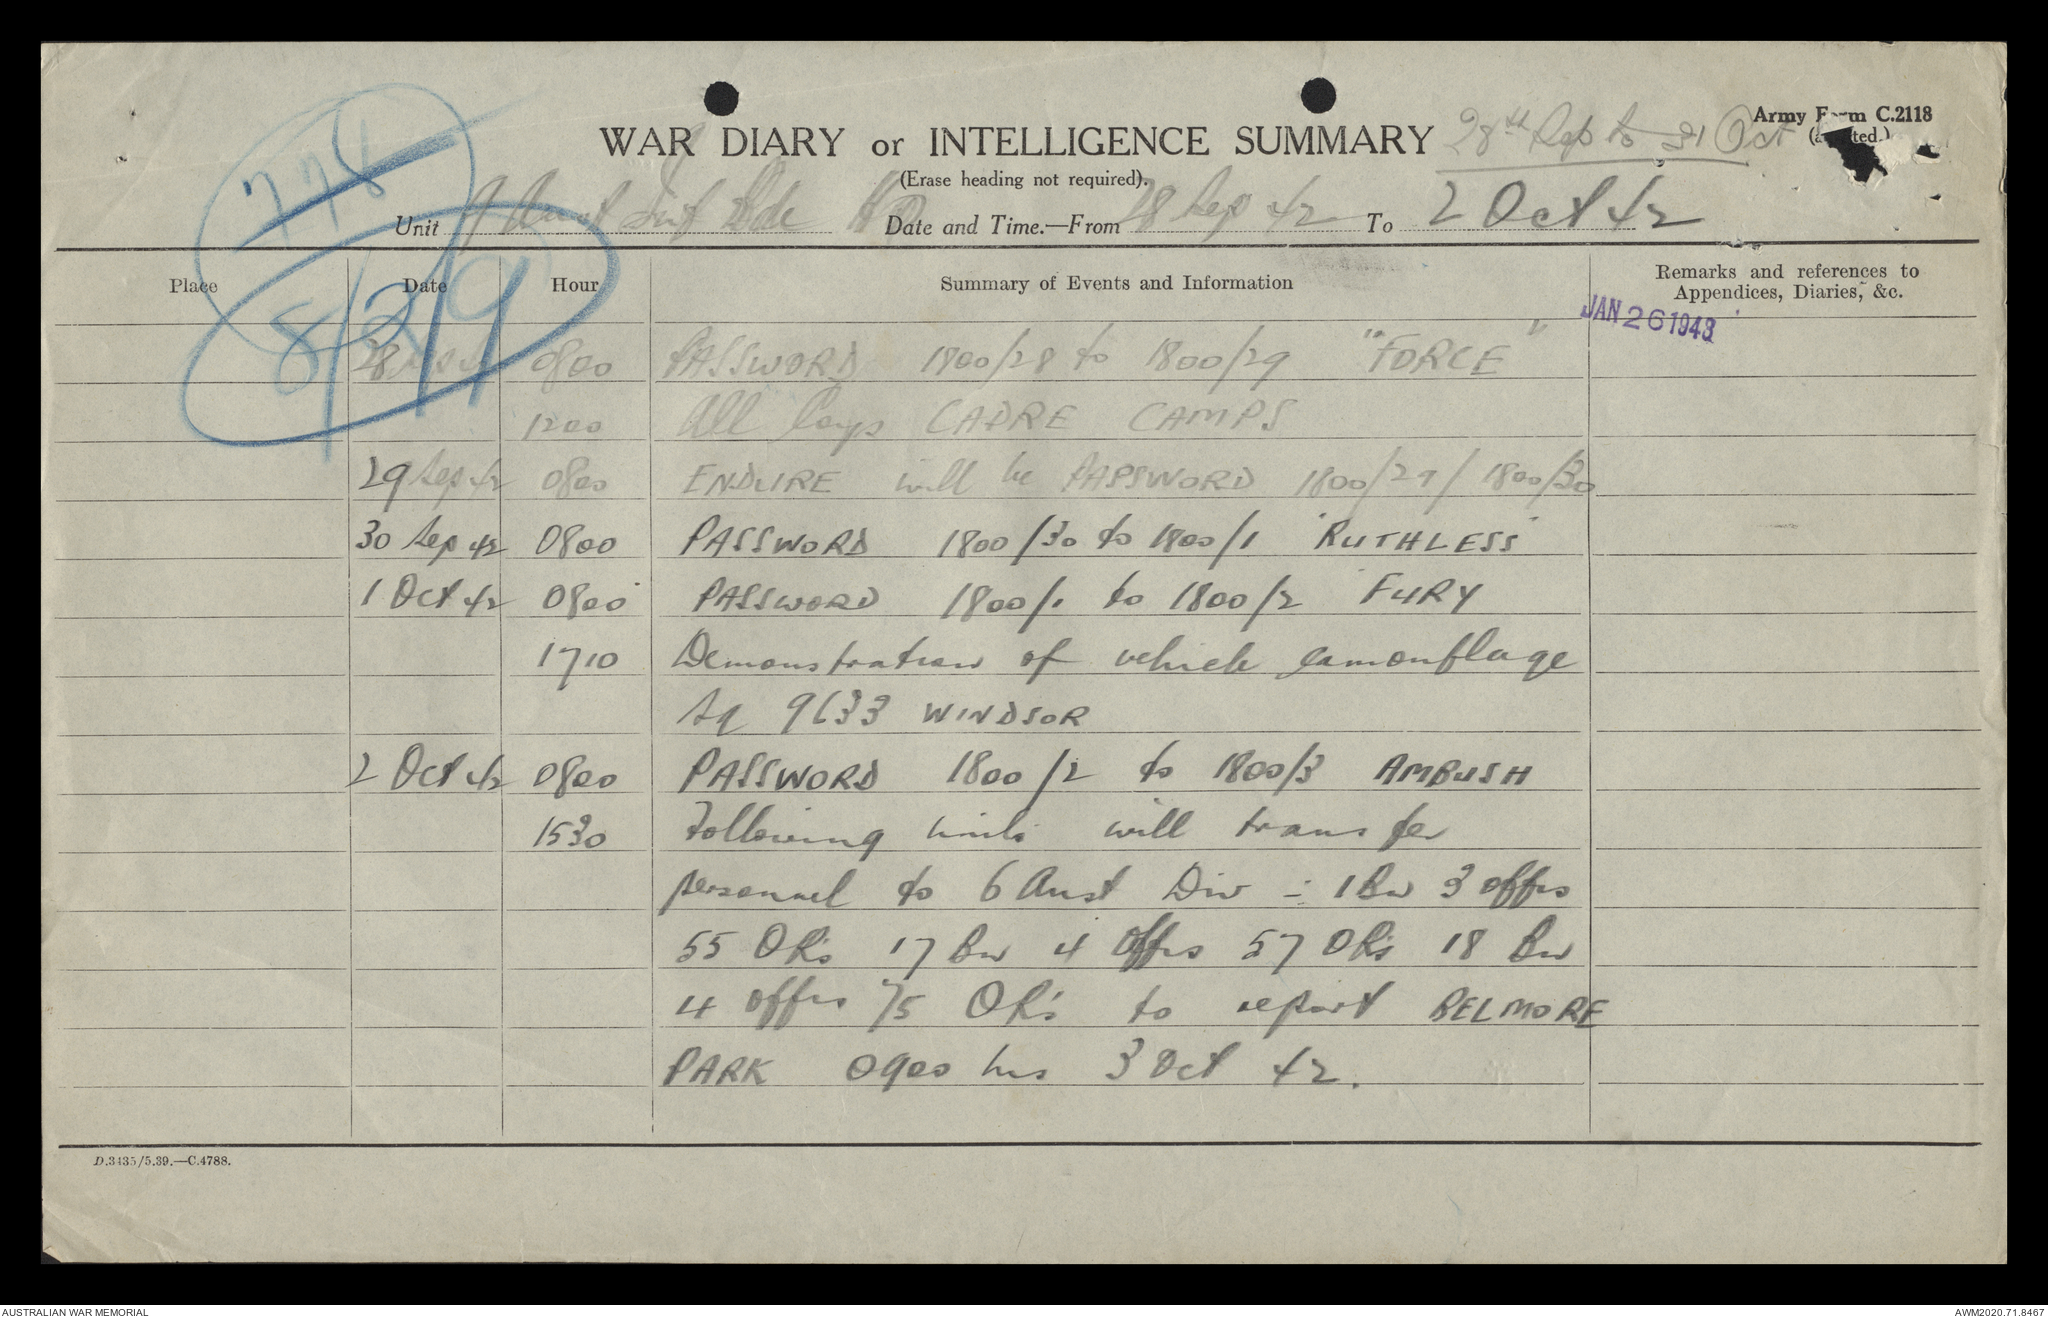 Army Form C.2118
WAR DIARY or INTELLIGENCE SUMMARY 28th Sep to 31 Oct
(Erase heading not required).
778
Unit 9 Aust Inf Bde HQ Date and Time.—From 28 Sep 42 To 2 Oct 42
8/2/9
Place Date Hour Summary of Events and Information Remarks and references to
Appendices, Diaries, &c.
JAN 26 1943
28 Sep 42 0800 PASSWORD 1800/28 to 1800/29 "FORCE"
1200 All Coys CADRE CAMPS
29 Sep 42 0800 ENDURE will be PASSWORD 1800/29/1800/30
30 Sep 42 0800 PASSWORD 1800/30 to 1800/1 'RUTHLESS'
1 Oct 42 0800 PASSWORD 1800/1 to 1800/2 FURY
1710 Demonstration of vehicle camouflage
Sq 9633 WINDSOR
2 Oct 42 0800 PASSWORD 1800/2 to 1800/3 AMBUSH
1530 Following units will transfer
personnel to 6 Aust Div :- 1 Bn 3 offrs
55 OR's 17 Bn 4 offrs 57 OR's 18 Bn
4 offrs 75 OR's to report BELMORE
PARK 0900 hrs 3 Oct 42.
D.3435/5.39.—C.4788.
AUSTRALIAN WAR MEMORIAL AWM2020.71.8467